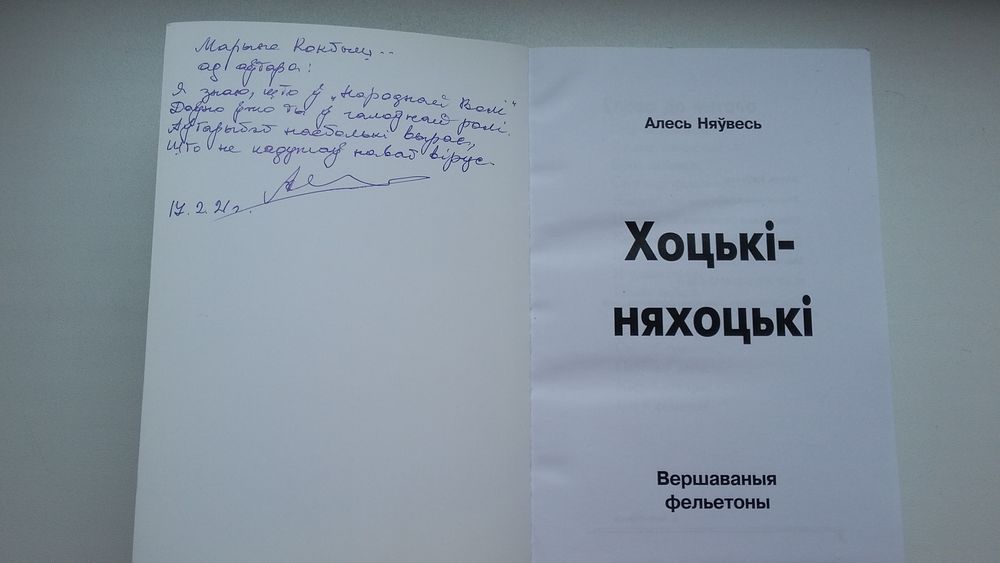 Марыне Коктыш
ад аўтара!
Я знаю, што ў „Народнай Волі“
Даўно ўжо ты ў галоўнай ролі.
Аўтарытэт настолькі вырас,
Што не падужаў нават вірус.
17.2.21 г.
Алесь Няўвесь
Хоцькі-
няхоцькі
Вершаваныя
фельетоны